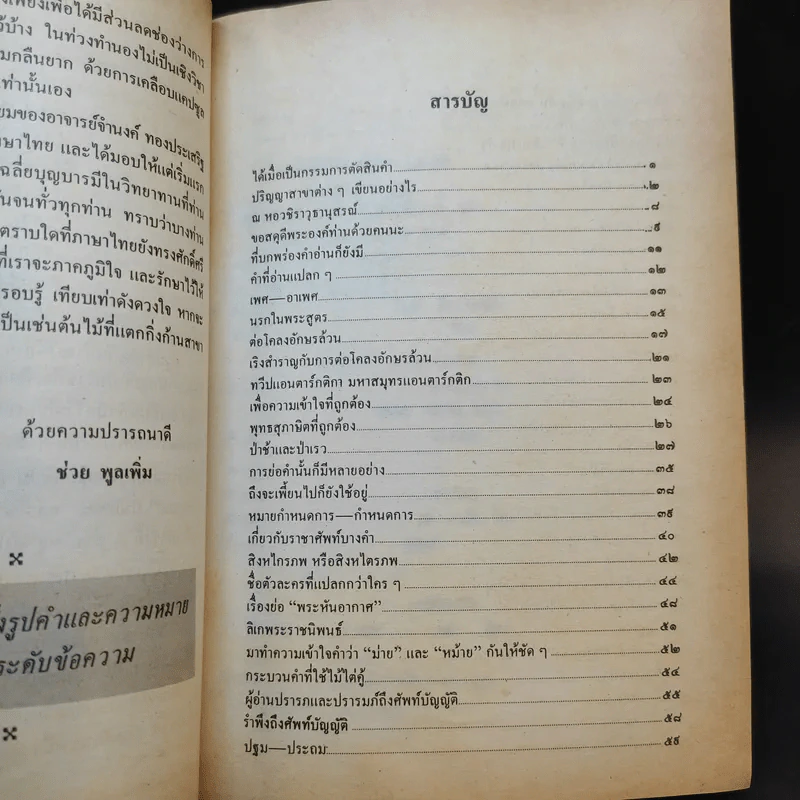 งเพียงเพื่อได้มีส่วนลดช่องว่างการ
ว้บ้าง ในท่วงทำนองไม่เป็นเชิงวิชา
มกลืนยาก ด้วยการเคลือบแคปซูล
เท่านั้นเอง
ยมของอาจารย์จำนงค์ ทองประเสริฐ
ษาไทย และได้มอบให้แต่เริ่มแรก
ฉลี่ยบุญบารมีในวิทยาทานที่ท่าน
นจนทั่วทุกท่าน ทราบว่าบางท่าน
ตราบใดที่ภาษาไทยยังทรงศักดิ์ศรี
ที่เราจะภาคภูมิใจ และรักษาไว้ให้
รอบรู้ เทียบเท่าดังดวงใจ หากจะ
ป็นเช่นต้นไม้ที่แตกกิ่งก้านสาขา
ด้วยความปรารถนาดี
ช่วย พูลเพิ่ม
งรูปคำและความหมาย
ระดับข้อความ
สารบัญ
ได้เมื่อเป็นกรรมการตัดสินคำ ๑
ปริญญาสาขาต่าง ๆ เขียนอย่างไร ๒
ณ หอวชิราวุธานุสรณ์ ๘
ขอสดุดีพระองค์ท่านด้วยคนนะ ๙
ที่บกพร่องคำอ่านก็ยังมี ๑๑
คำที่อ่านแปลก ๆ ๑๒
เพศ—อาเพศ ๑๓
นรกในพระสูตร ๑๕
ต่อโคลงอักษรล้วน ๑๗
เริงสำราญกับการต่อโคลงอักษรล้วน ๒๑
ทวีปแอนตาร์กติกา มหาสมุทรแอนตาร์กติก ๒๓
เพื่อความเข้าใจที่ถูกต้อง ๒๔
พุทธสุภาษิตที่ถูกต้อง ๒๖
ป่าช้าและป่าเรว ๒๗
การย่อคำนั้นก็มีหลายอย่าง ๓๕
ถึงจะเพี้ยนไปก็ยังใช้อยู่ ๓๘
หมายกำหนดการ—กำหนดการ ๓๙
เกี่ยวกับราชาศัพท์บางคำ ๔๐
สิงหไกรภพ หรือสิงหไตรภพ ๔๒
ชื่อตัวละครที่แปลกกว่าใคร ๆ ๔๔
เรื่องย่อ “พระหันอากาศ” ๔๘
ลิเกพระราชนิพนธ์ ๕๑
มาทำความเข้าใจคำว่า “ม่าย” และ “หม้าย” กันให้ชัด ๆ ๕๒
กระบวนคำที่ใช้ไม้ไต่คู้ ๕๔
ผู้อ่านปรารภและปรารมภ์ถึงศัพท์บัญญัติ ๕๕
รำพึงถึงศัพท์บัญญัติ ๕๘
ปฐม—ประถม ๕๙